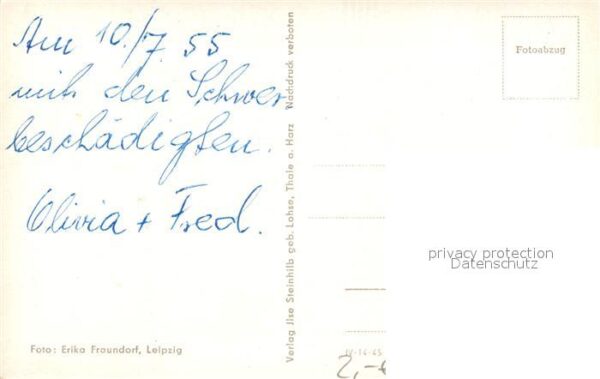 Am 10./7 55
mit den Schwer
beschädigten.
Olivia + Fred.
Foto: Erika Fraundorf, Leipzig
Verlag Jlse Steinhilb geb. Lohse, Thale a. Harz Nachdruck verboten
Fotoabzug
privacy protection
Datenschutz
IV-14-45
2,-